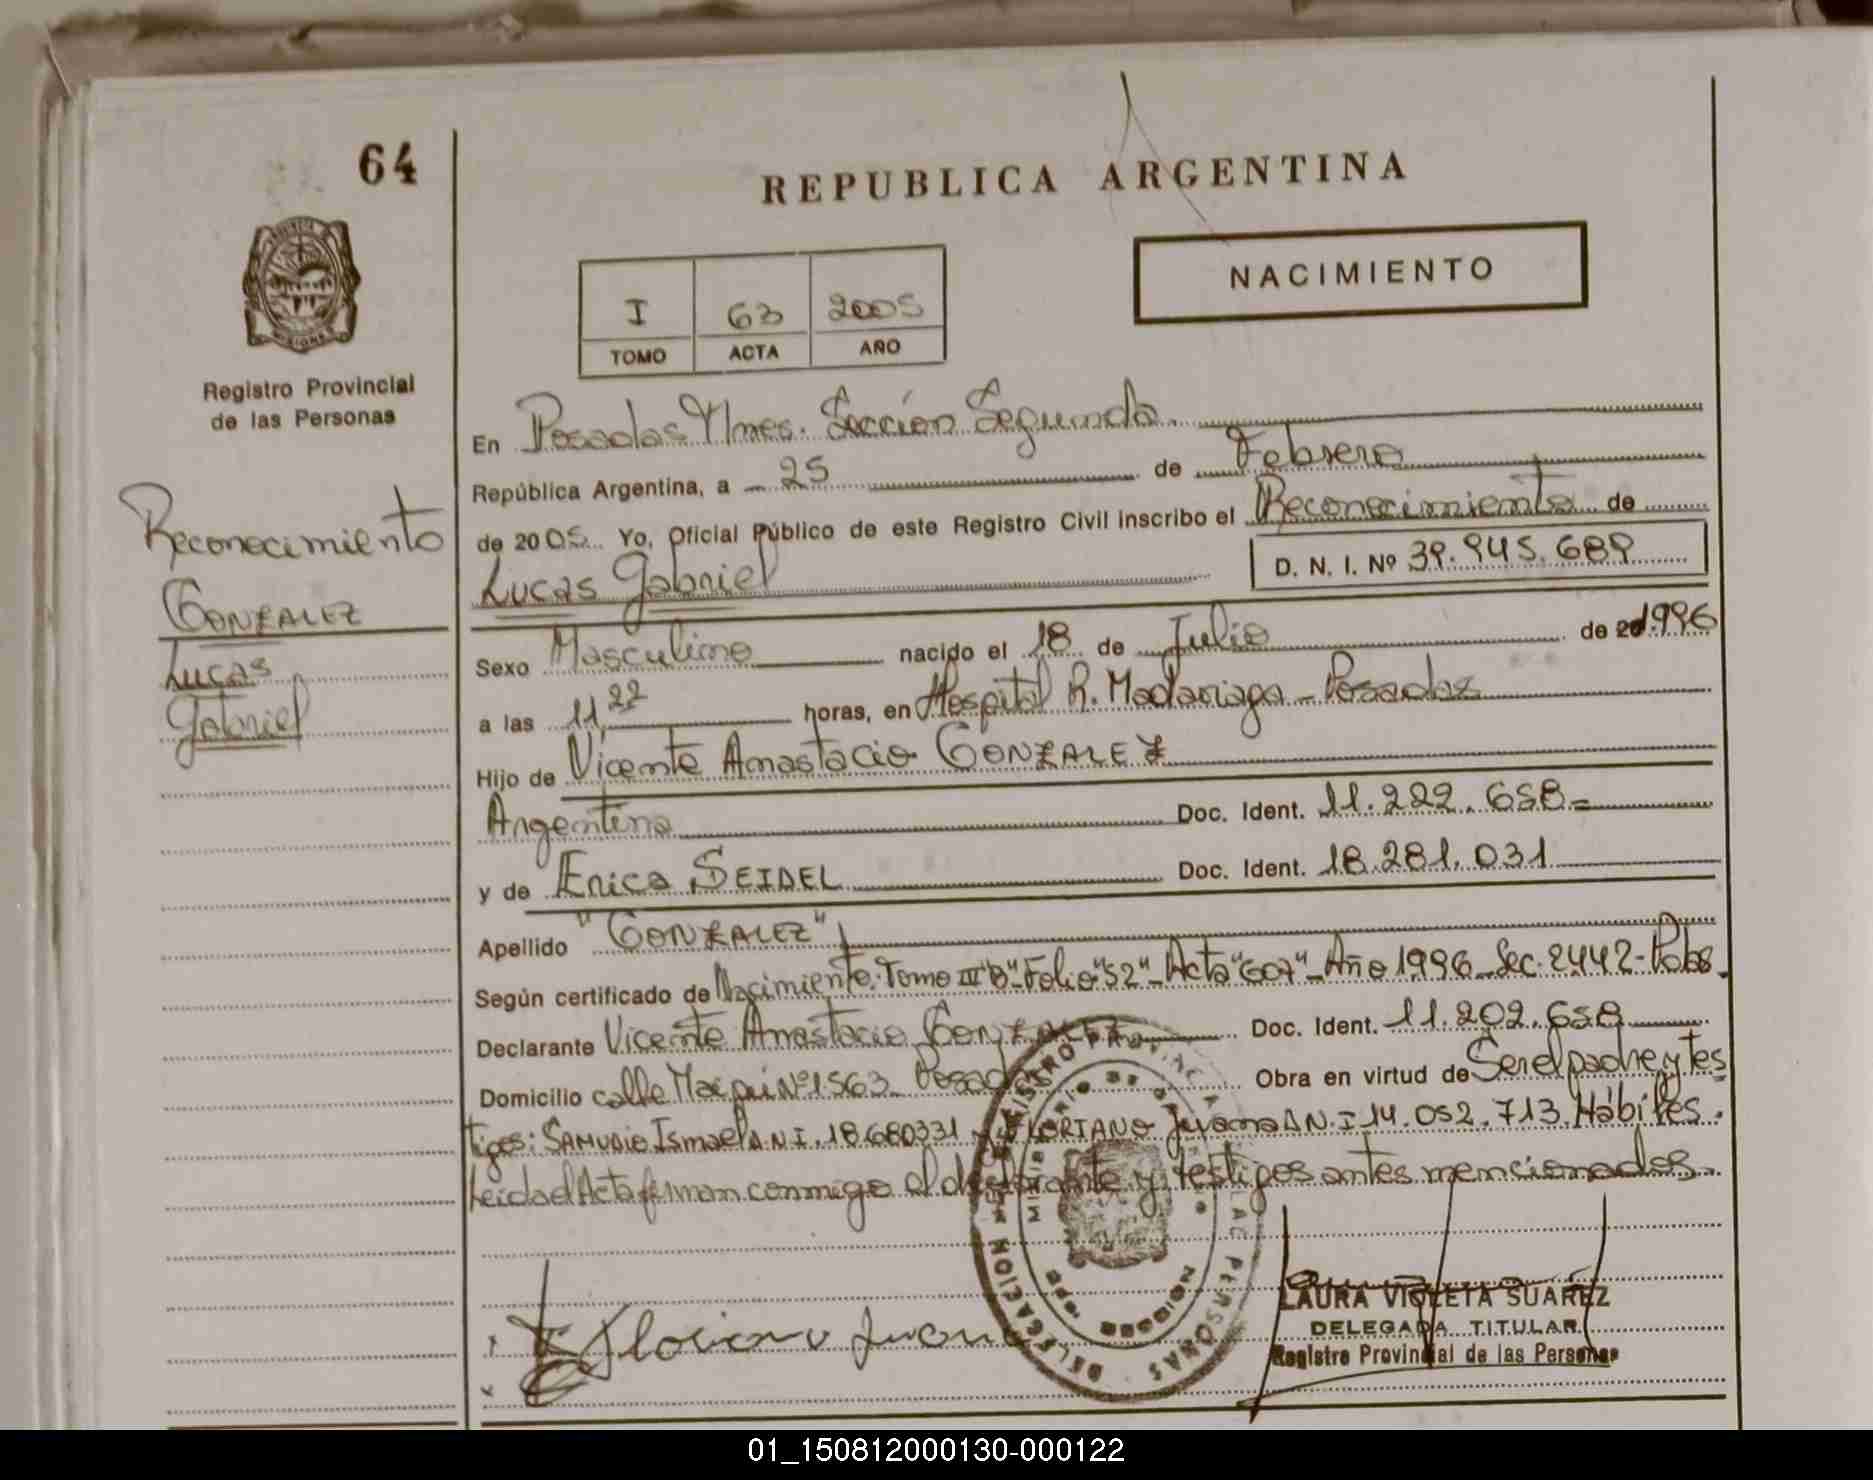 64
REPUBLICA ARGENTINA
NACIMIENTO
I 63 2005
TOMO ACTA AÑO
Registro Provincial
de las Personas
Reconocimiento
GONZALEZ
Lucas
Gabriel
En Posadas Mnes. Sección Segunda
República Argentina, a 25 de Febrero
de 2005 Yo, Oficial Público de este Registro Civil inscribo el Reconocimiento de
Lucas Gabriel D. N. I. Nº 39.945.689
Sexo Masculino nacido el 18 de Julio de 1996
a las 11 22 horas, en Hospital R. Madariaga - Posadas
Hijo de Vicente Anastacio GONZALEZ
Argentina Doc. Ident. 11.222.658=
y de Erica SEIDEL Doc. Ident. 18.281.031
Apellido "GONZALEZ"
Según certificado de Nacimiento: Tomo III"B"-Folio"52"-Acta"607"-Año 1996-Sec. 2442-Pdas.
Declarante Vicente Anastacio GONZALEZ Doc. Ident. 11.202.658
Domicilio calle Maipú Nº1563 Posadas Obra en virtud de Ser el padre y tes
tigos: SAMUDIO Ismael D.N.I. 18680331 y FLORIANO Juana D.N.I 14.052.713. Hábiles.
Leida el Acta firman conmigo el declarante y testigos antes mencionados
Floriano Juana
LAURA VIOLETA SUAREZ
DELEGADA TITULAR
Registro Provincial de las Personas
REGISTRO PROVINCIAL DE LAS PERSONAS
DELEGACION
MINISTERIO DE GOBIERNO
MISIONES
01_150812000130-000122